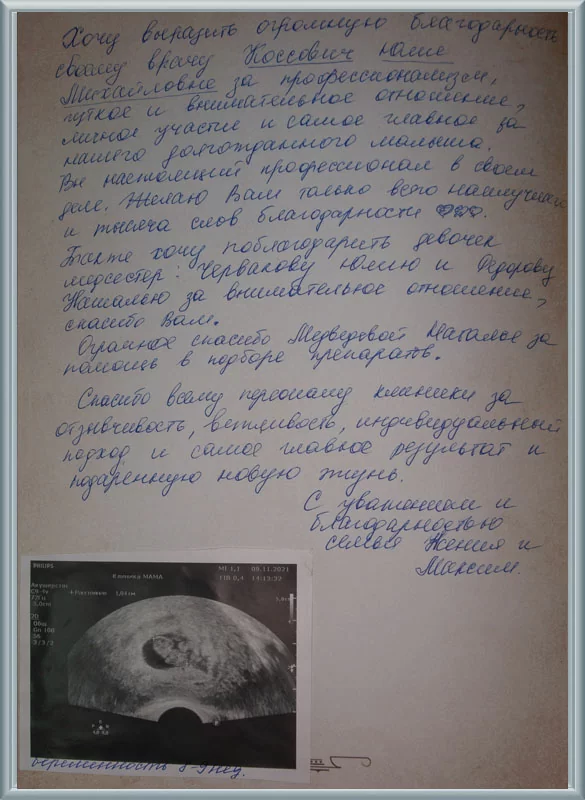 Хочу выразить огромную благодарность
своему врачу Коссович Юлие
Михайловне за профессионализм,
чуткое и внимательное отношение,
личное участие и самое главное за
нашего долгожданного малыша.
Вы настоящий профессионал в своем
деле. Желаю Вам только всего наилучшего
и тысяча слов благодарности
Также хочу поблагодарить девочек
медсестер: Червакову Юлию и Федорову
Наталью за внимательное отношение,
спасибо Вам.
Огромное спасибо Медведевой Наталье за
помощь в подборе препаратов.
Спасибо всему персоналу клиники за
отзывчивость, вежливость, индивидуальный
подход и самое главное результат и
подаренную новую жизнь.
С уважением и
благодарностью
семья Ксения и
Максим.
PHILIPS
Клиника МАМА
MI 1.1 08.11.2021
TIS 0.4 14:13:22
Акушерство
+ Расстояние 1.84 см
2D
Общ
Gn 100
56
3/3/2
беременность 8-9 нед.